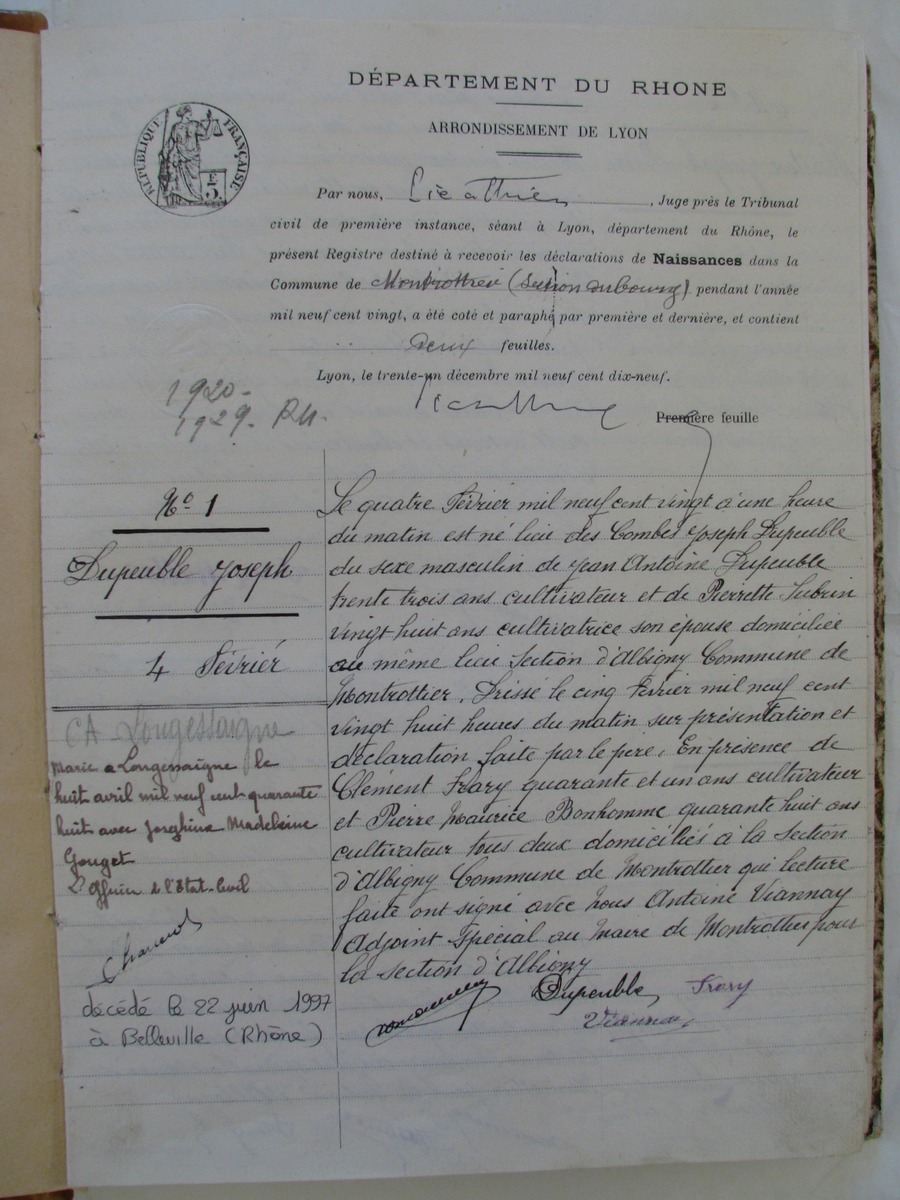 DÉPARTEMENT DU RHONE
ARRONDISSEMENT DE LYON
RÉPUBLIQUE FRANÇAISE
Par nous, , Juge près le Tribunal
civil de première instance, séant à Lyon, département du Rhône, le
présent Registre destiné à recevoir les déclarations de Naissances dans la
Commune de Montrottier (Section du bourg) pendant l'année
mil neuf cent vingt, a été coté et paraphé par première et dernière, et contient
Deux feuilles.
Lyon, le trente-un décembre mil neuf cent dix-neuf.
1920-
1929.
Première feuille
No 1
Dupeuble Joseph
4 Février
CA Longessaigne
Marié a Longessaigne le
huit avril mil neuf cent quarante
huit avec Josephine Madeleine
Gouget
L'Officier de l'Etat-Civil
décédé le 22 juin 1997
à Belleville (Rhône)
Le quatre Février mil neuf cent vingt à une heure
du matin est né lieu des Combes Joseph Dupeuble
du sexe masculin de Jean Antoine Dupeuble
trente trois ans cultivateur et de Pierrette Subrin
vingt huit ans cultivatrice son epouse domiciliée
au même lieu Section d'Albigny Commune de
Montrottier. Drissé le cinq Février mil neuf cent
vingt huit heures du matin sur présentation et
déclaration faite par le pere. En présence de
Clément Frary quarante et un ans cultivateur
et Pierre Maurice Bonhomme quarante huit ans
cultivateur tous deux domiciliés à la Section
d'Albigny Commune de Montrottier qui lecture
faite ont signé avec Nous Antoine Viannay
Adjoint Spécial au Maire de Montrottier pour
la section d'Albigny
Dupeuble Frary
Viannay